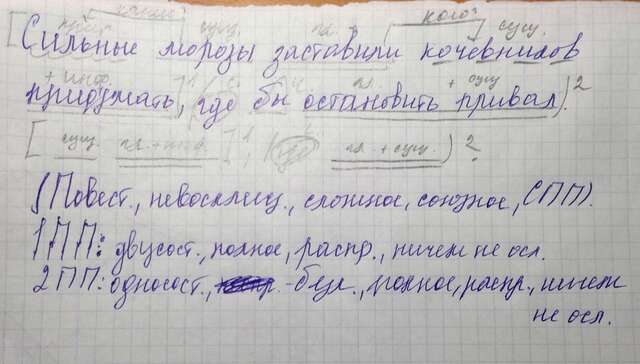 какие? кого?
сущ. гл. сущ.
[Сильные морозы заставили кочевников
+ инф. гл. + сущ.
придумать, где бы остановить привал)².
[ сущ. гл. + инф. ]¹, (где гл. + сущ.)²
(Повест., невосклиц., сложное, союзное, СПП).
1 ПП: двусост., полное, распр., ничем не осл.
2 ПП: односост., безл., полное, распр., ничем
не осл.